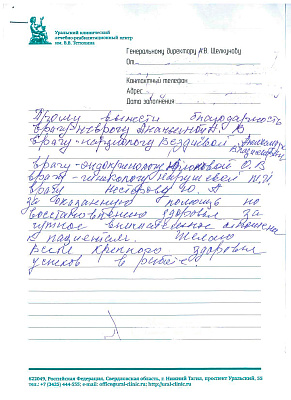 Уральский клинический
лечебно-реабилитационный центр
им. В.В. Тетюхина
Генеральному директору Н.В. Щелкунову
От
Контактный телефон
Адрес
Дата заполнения
Прошу вынести благодарность
врачу-неврологу А. В
врачу-кардиологу
врачу-эндокринологу О.В
врачу-гинекологу Н.И.
врачу Нестерову Ю. А
за оказанную помощь по
восстановлению здоровья за
чуткое внимательное отношение
к пациентам. Желаю
всем крепкого здоровья
успехов в работе.
622049, Российская Федерация, Свердловская область, г. Нижний Тагил, проспект Уральский, 55
тел.: +7 (3435) 444-555; e-mail: office@ural-clinic.ru; http://ural-clinic.ru